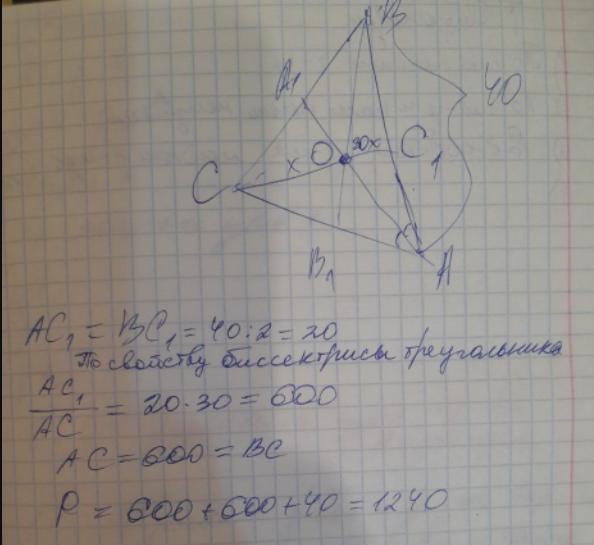 B
A₁
40
O
30x
C₁
x
C
B₁
A
AC₁ = BC₁ = 40:2 = 20
По свойству биссектрисы треугольника
AC₁/AC = 20·30 = 600
AC = 600 = BC
P = 600 + 600 + 40 = 1240